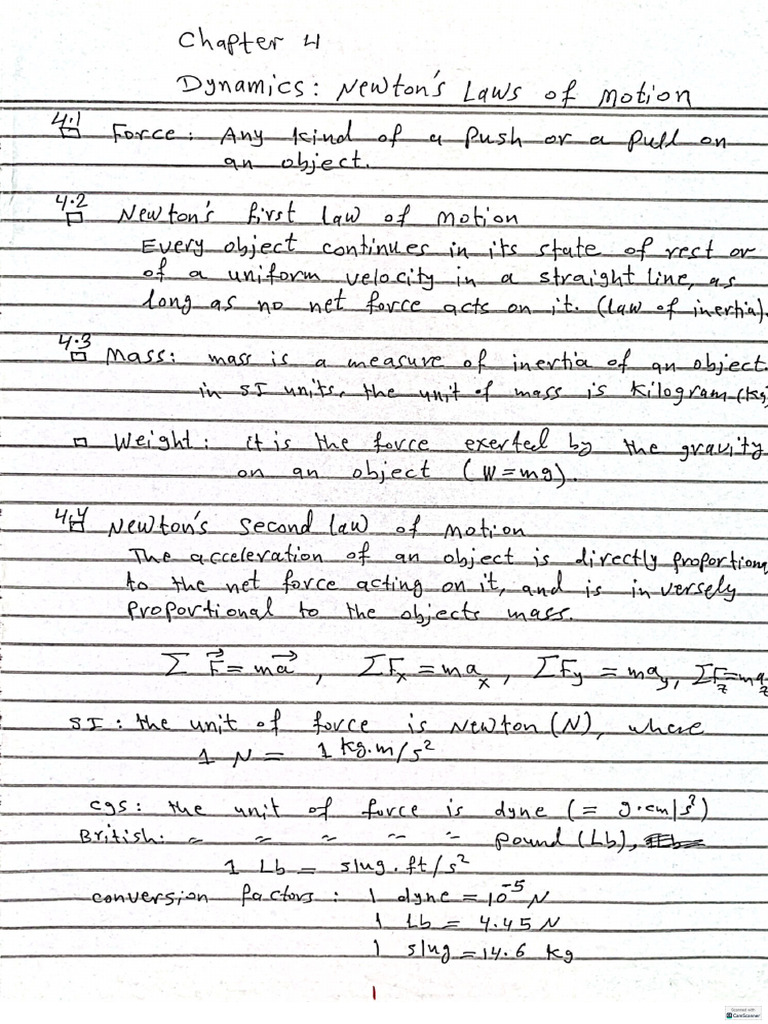 Chapter 4
Dynamics: Newton's Laws of Motion
4.1 □ Force: Any kind of a push or a pull on
an object.
4.2 □ Newton's first law of motion
Every object continues in its state of rest or
of a uniform velocity in a straight line, as
long as no net force acts on it. (law of inertia).
4.3 □ Mass: mass is a measure of inertia of an object.
in SI units, the unit of mass is kilogram (kg)
□ Weight: it is the force exerted by the gravity
on an object (W=mg).
4.4 □ Newton's second law of motion
The acceleration of an object is directly proportion
to the net force acting on it, and is inversely
proportional to the objects mass.
∑ F⃗ = ma⃗ , ∑Fx = max , ∑Fy = may, ∑Fz = maz
SI: the unit of force is Newton (N), where
1 N = 1 kg.m/s²
cgs: the unit of force is dyne (= g.cm/s²)
British: ~ ~ ~ ~ ~ pound (Lb),
1 Lb = slug.ft/s²
conversion factors: 1 dyne = 10⁻⁵ N
1 Lb = 4.45 N
1 slug = 14.6 kg
1
Scanned with
CamScanner